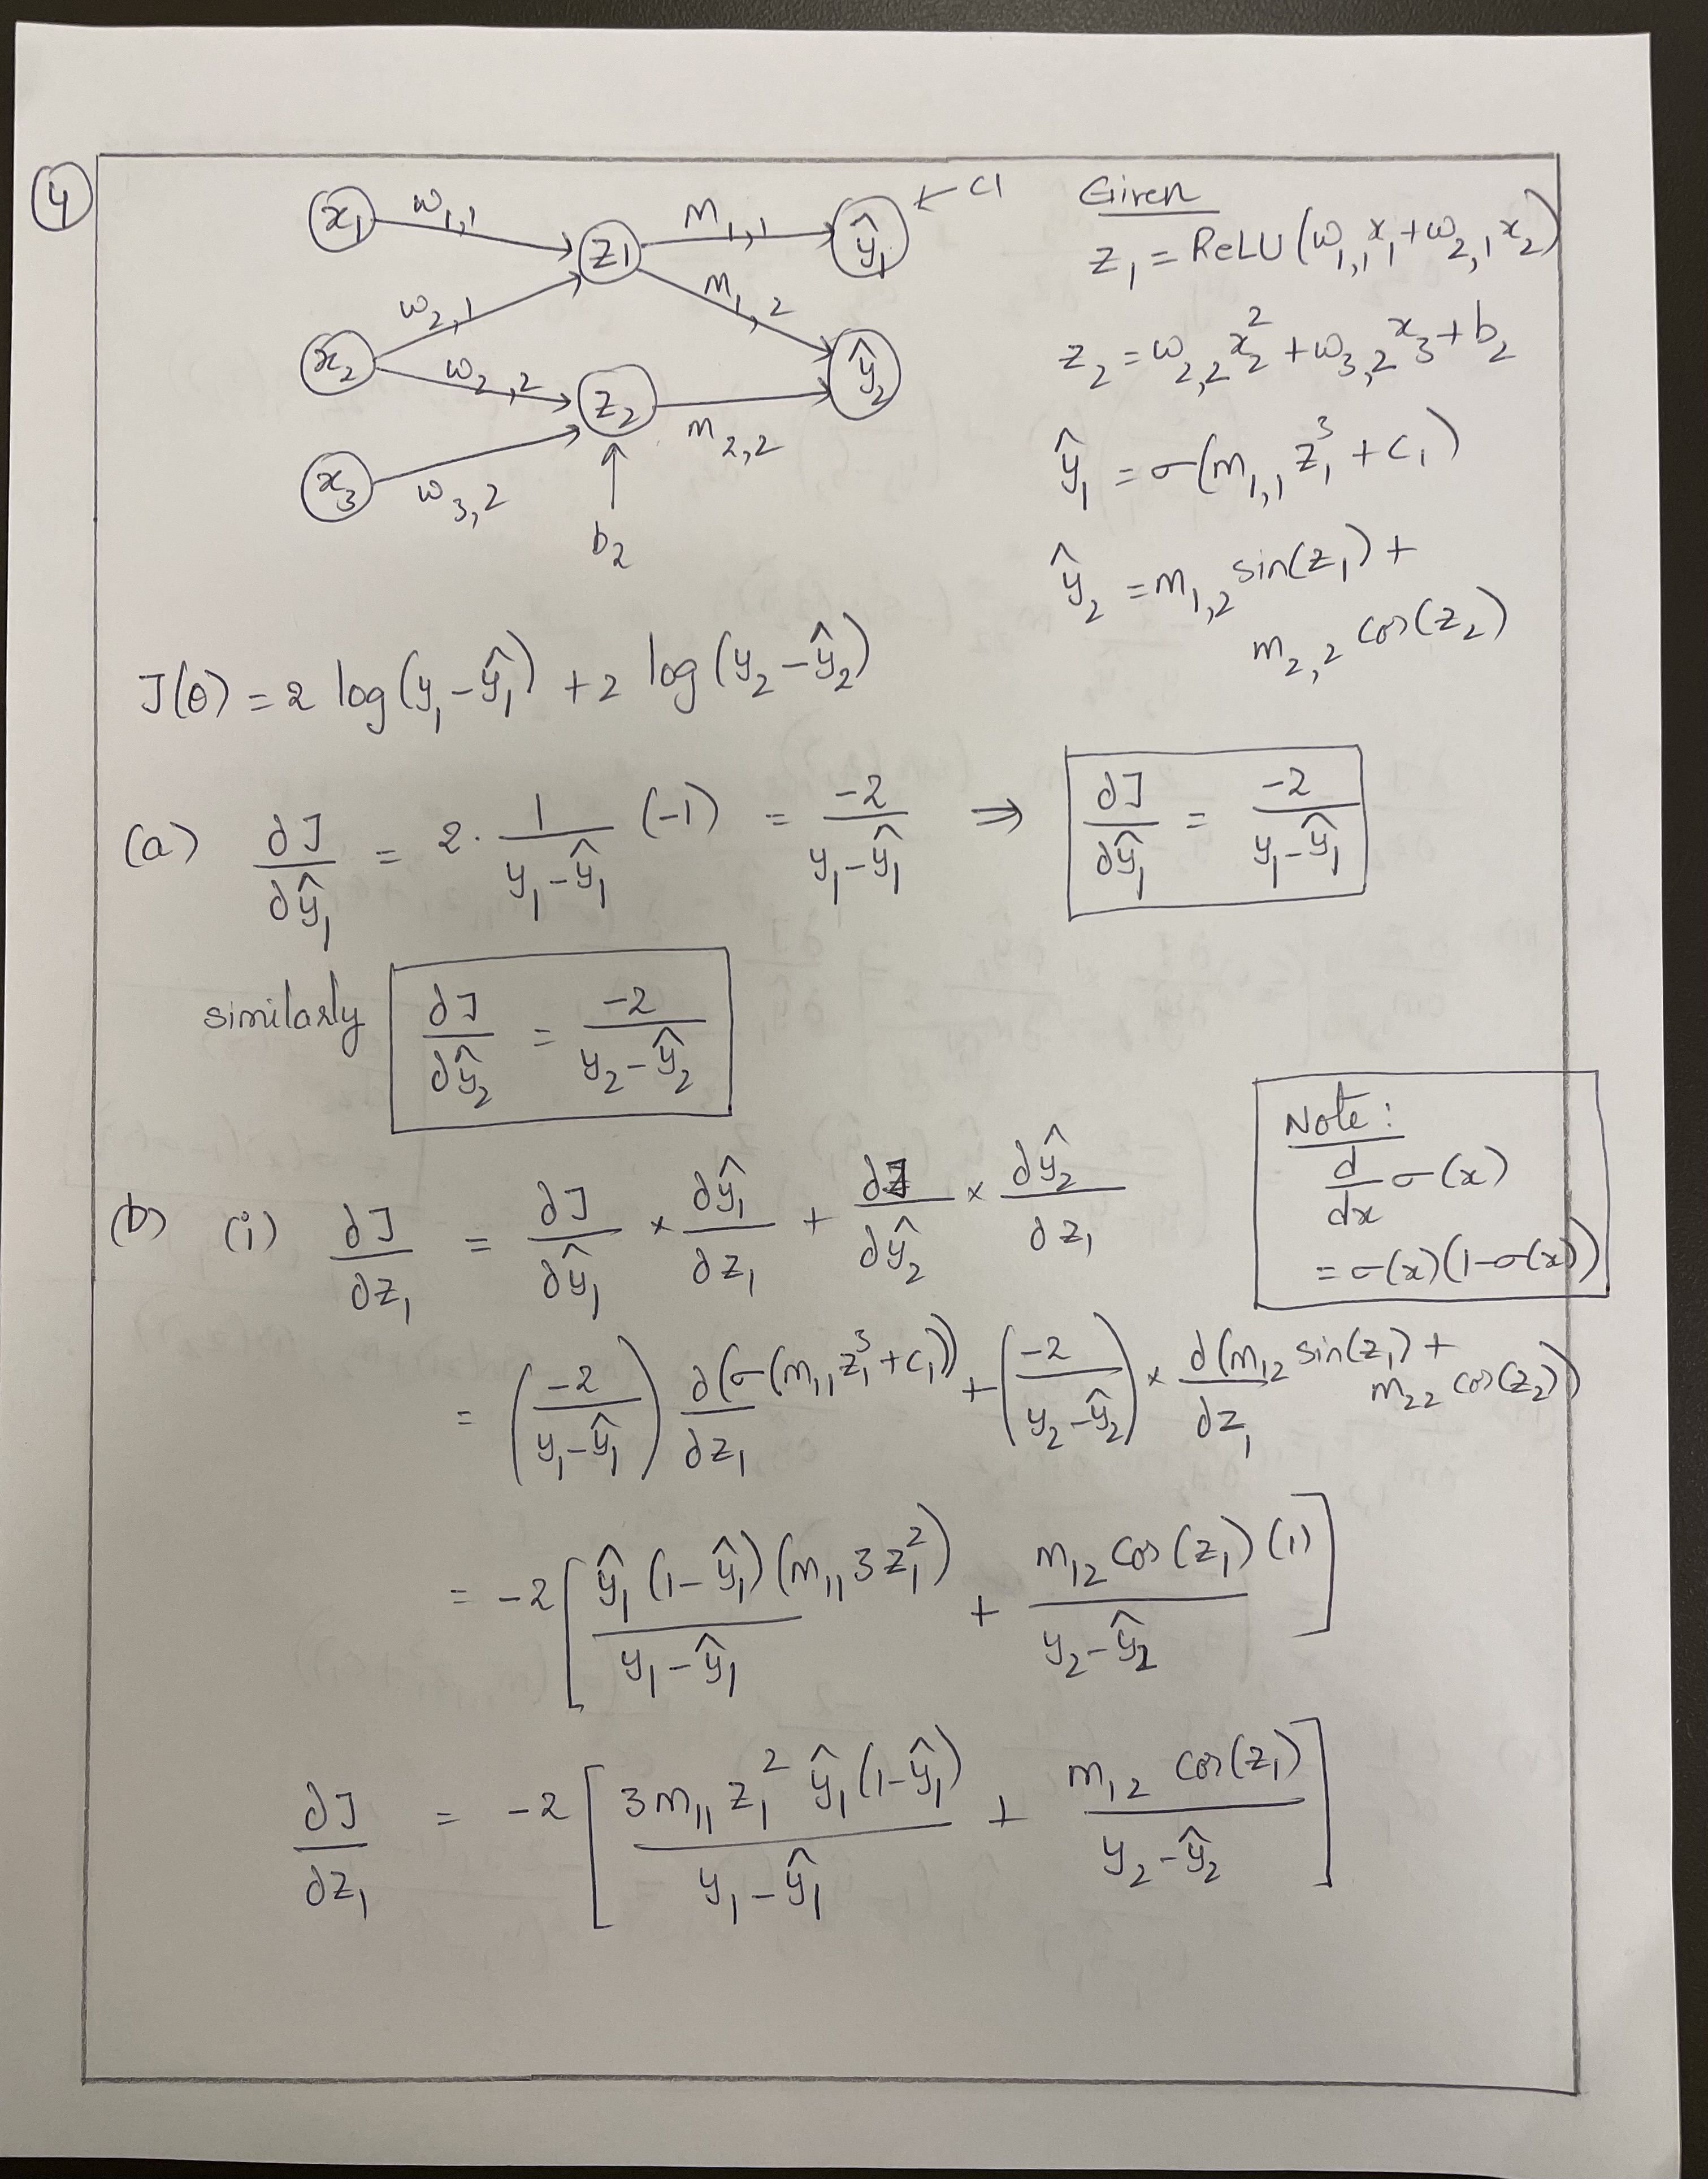 ④
x₁ w₁,₁ z₁ m₁,₁ ŷ₁ ← c1
w₂,₁ m₁,₂
x₂ w₂,₂ z₂ m₂,₂ ŷ₂
x₃ w₃,₂
b₂
Given
z₁ = ReLU(w₁,₁x₁ + w₂,₁x₂)
z₂ = w₂,₂x₂² + w₃,₂x₃ + b₂
ŷ₁ = σ(m₁,₁z₁³ + c₁)
ŷ₂ = m₁,₂ sin(z₁) +
m₂,₂ cos(z₂)
J(θ) = 2 log(y₁ - ŷ₁) + 2 log(y₂ - ŷ₂)
(a) ∂J/∂ŷ₁ = 2 · 1/(y₁ - ŷ₁) (-1) = -2/(y₁ - ŷ₁) ⇒ ∂J/∂ŷ₁ = -2/(y₁ - ŷ₁)
similarly ∂J/∂ŷ₂ = -2/(y₂ - ŷ₂)
Note:
d/dx σ(x)
= σ(x)(1-σ(x))
(b) (i) ∂J/∂z₁ = ∂J/∂ŷ₁ × ∂ŷ₁/∂z₁ + ∂J/∂ŷ₂ × ∂ŷ₂/∂z₁
= (-2/(y₁ - ŷ₁)) ∂(σ(m₁₁z₁³ + c₁))/∂z₁ + (-2/(y₂ - ŷ₂)) × ∂(m₁₂ sin(z₁) + m₂₂ cos(z₂))/∂z₁
= -2[ŷ₁(1-ŷ₁)(m₁₁3z₁²)/(y₁ - ŷ₁) + m₁₂ cos(z₁)(1)/(y₂ - ŷ₂)]
∂J/∂z₁ = -2[3m₁₁z₁²ŷ₁(1-ŷ₁)/(y₁ - ŷ₁) + m₁₂ cos(z₁)/(y₂ - ŷ₂)]